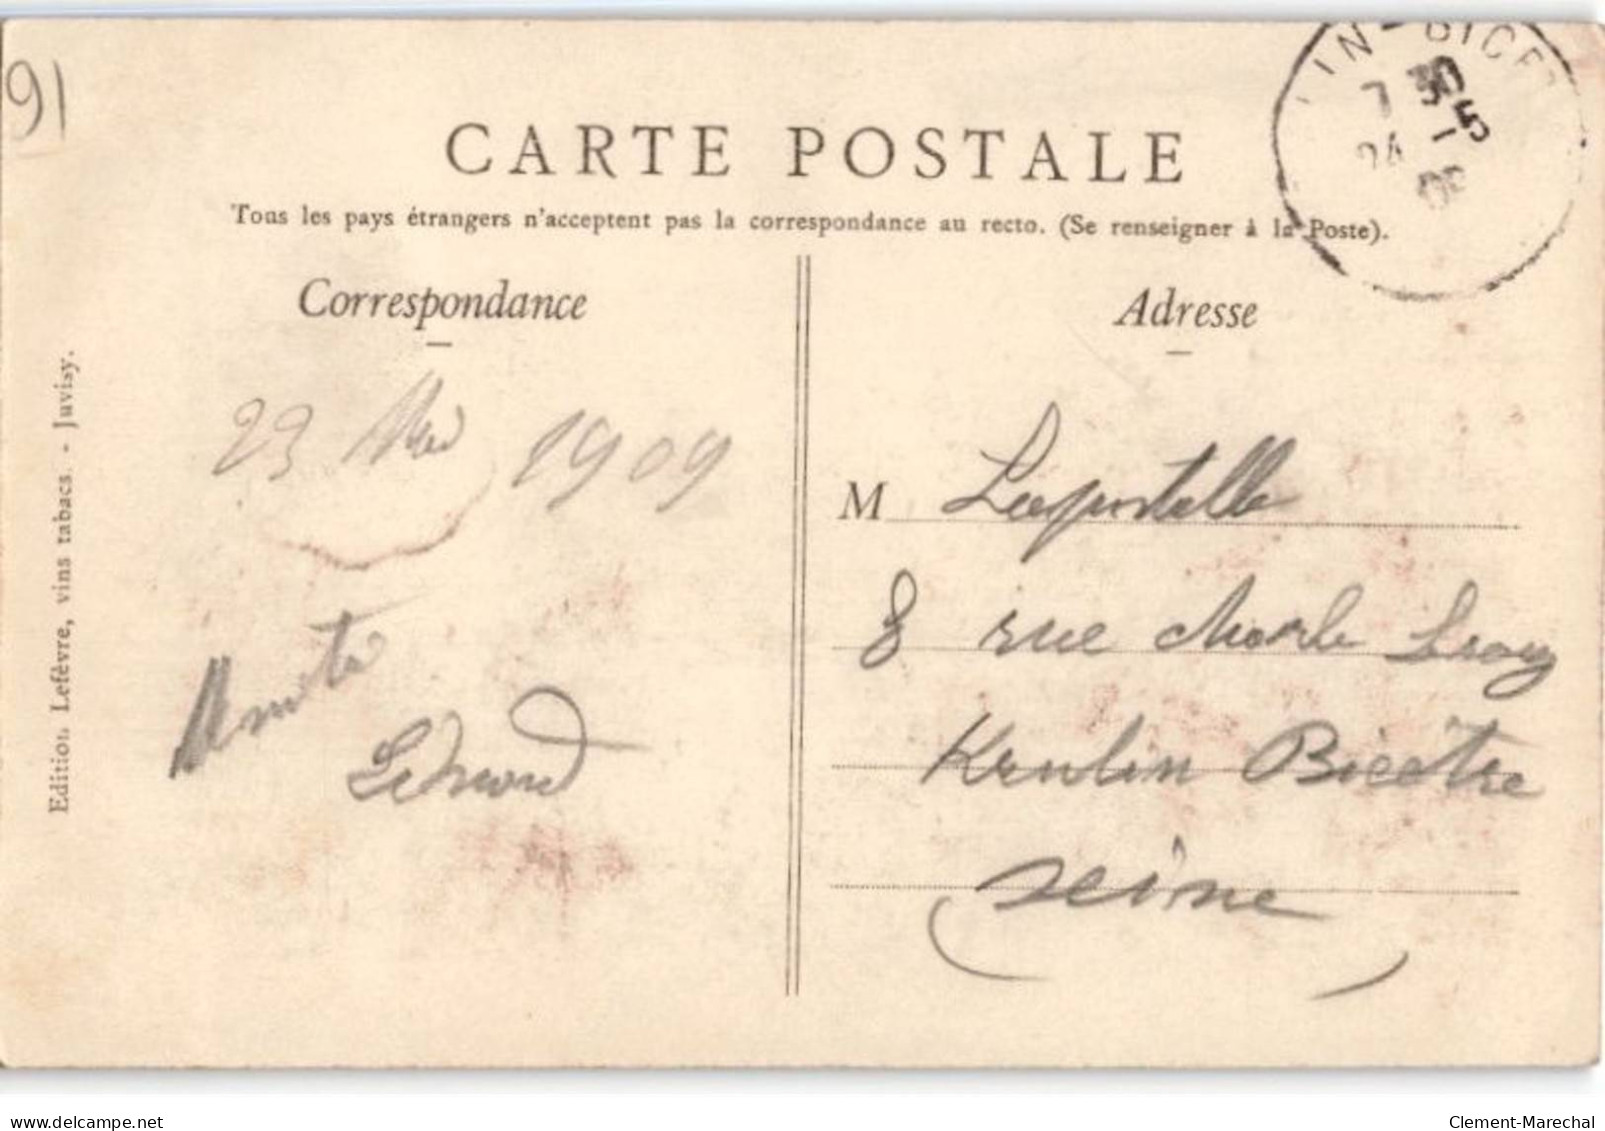 91
CARTE POSTALE
Tous les pays étrangers n'acceptent pas la correspondance au recto. (Se renseigner à la Poste).
Correspondance
23 Mai 1909
Amitié
Edmond
Edition Lefèvre, vins tabacs. - Juvisy.
LIN-BICE
7 30
24 - 5
09
Adresse
M Lapostolle
8 rue Charle Leroy
Kremlin Bicêtre
(Seine)
delcampe.net
Clement-Marechal